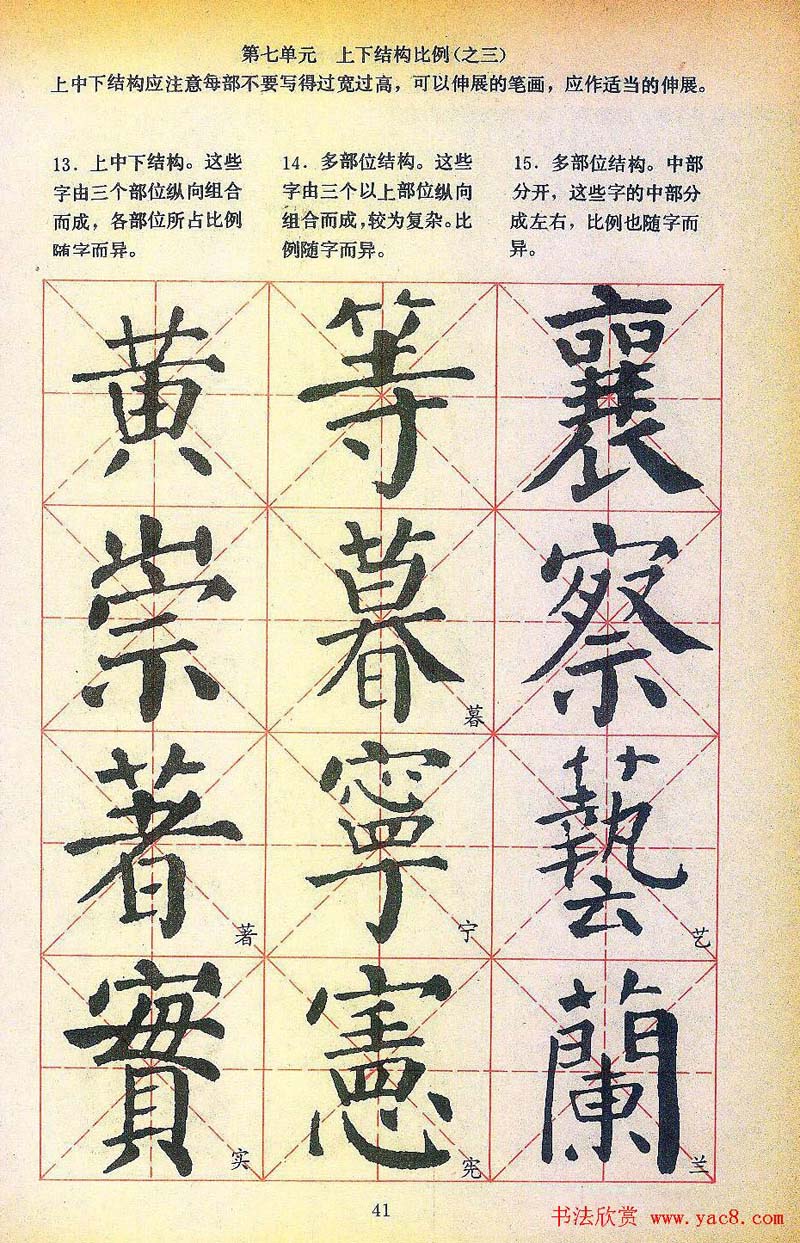 第七单元 上下结构比例(之三)
上中下结构应注意每部不要写得过宽过高，可以伸展的笔画，应作适当的伸展。
13．上中下结构。这些
字由三个部位纵向组合
而成，各部位所占比例
随字而异。
14．多部位结构。这些
字由三个以上部位纵向
组合而成，较为复杂。比
例随字而异。
15．多部位结构。中部
分开，这些字的中部分
成左右，比例也随字而
异。
黄 等 襄
崇 暮 察
暮
著 寧 藝
著 宁 艺
實 憲 蘭
实 宪 兰
41
书法欣赏 www.yac8.com